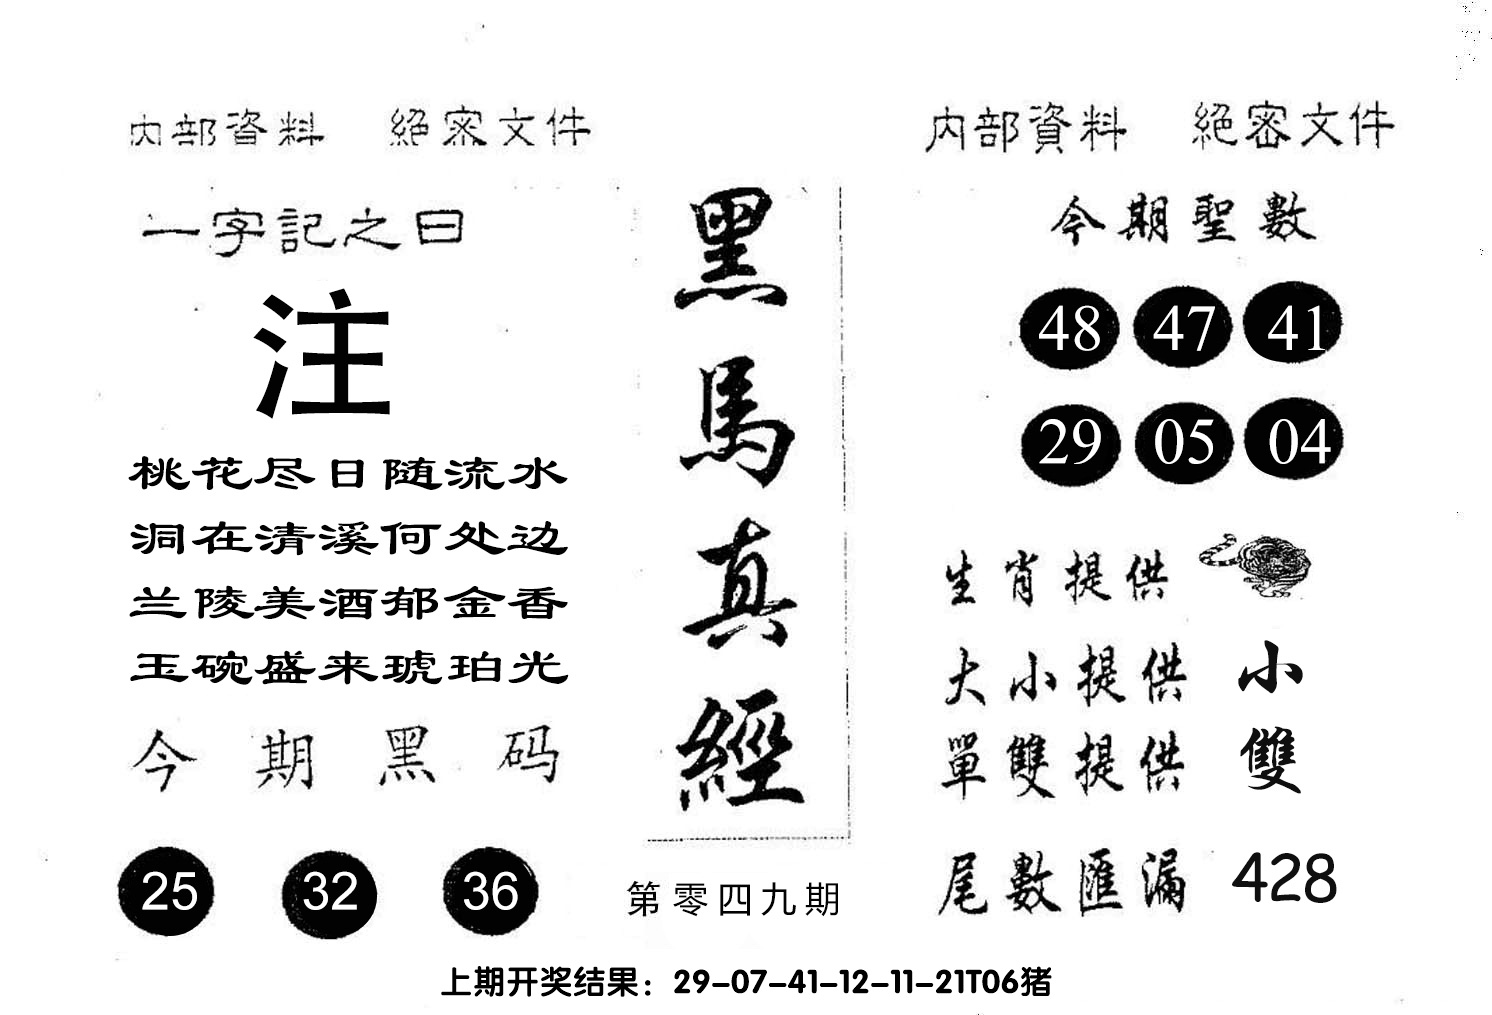 内部資料 絕密文件
一字記之曰
注
桃花尽日随流水
洞在清溪何处边
兰陵美酒郁金香
玉碗盛来琥珀光
今期黑码
25 32 36
黑馬真經
第零四九期
内部資料 絕密文件
今期聖數
48 47 41
29 05 04
生肖提供
大小提供 小
單雙提供 雙
尾數匯漏 428
上期开奖结果：29-07-41-12-11-21T06猪